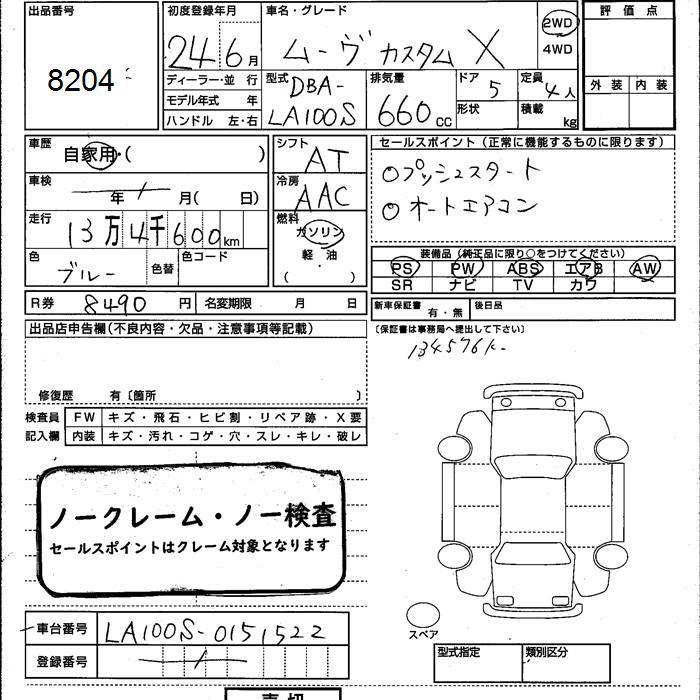 出品番号 8204
初度登録年月 24 6月
車名・グレード ムーヴ カスタム X
2WD
4WD
評価点
外装 内装
ディーラー・並 行
モデル年式 年
ハンドル 左・右
型式 DBA-LA100S
排気量 660cc
ドア 5
形状
定員 4人
積載 kg
車歴 自家用・( )
シフト AT
セールスポイント(正常に機能するものに限ります)
○プッシュスタート
○オートエアコン
車検 年 月( 日)
冷房 AAC
走行 13万4千600km
燃料 ガソリン
軽・油
( )
色 ブルー 色替 色コード
装備品(純正品に限り○をつけてください)
PS PW ABS エアB AW
SR ナビ TV カワ
R券 8490円 名変期限 月 日
新車保証書 有・無 後日品
(保証書は事務局へ提出して下さい)
134576k-
出品店申告欄(不良内容・欠品・注意事項等記載)
修復歴 有〔箇所 〕
検査員記入欄
FW キズ・飛石・ヒビ割・リペア跡・X要
内装 キズ・汚れ・コゲ・穴・スレ・キレ・破レ
ノークレーム・ノー検査
セールスポイントはクレーム対象となります
スペア
車台番号 LA100S-0151522
登録番号
型式指定 類別区分